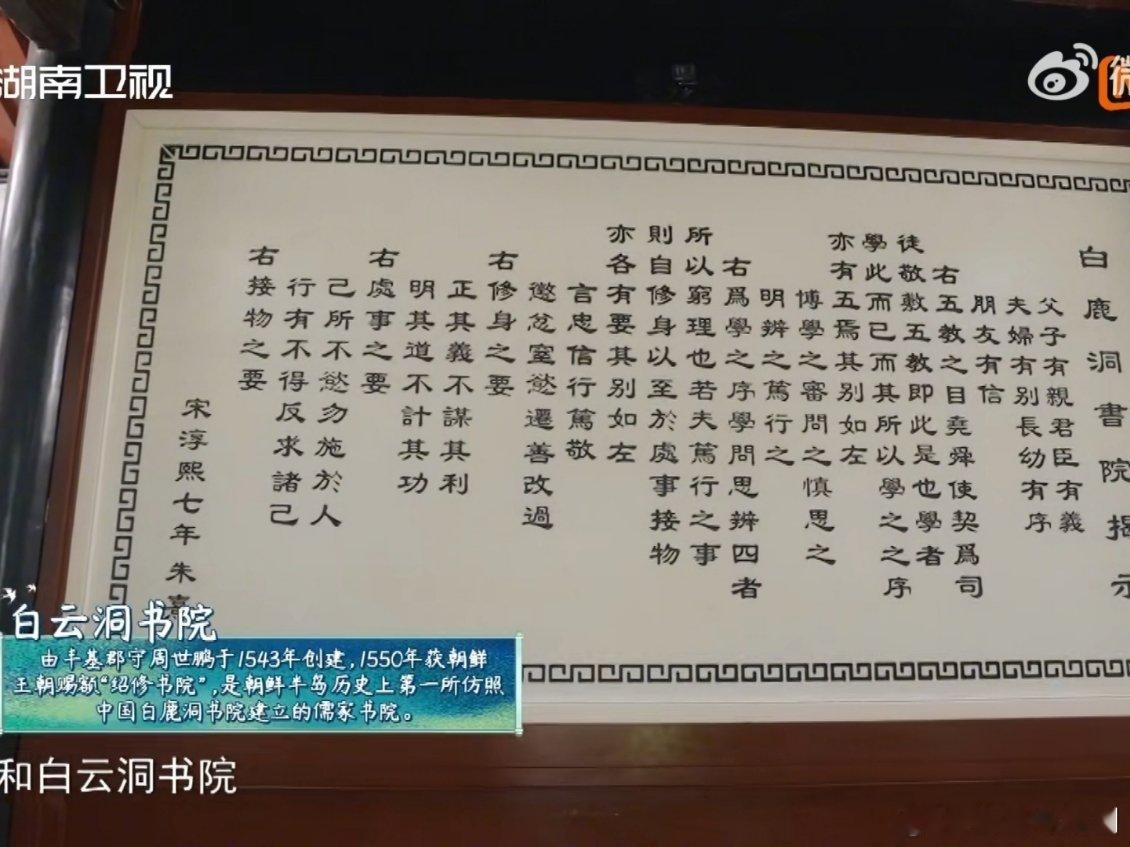 湖南卫视
微
白鹿洞書院揭示
父子有親君臣有義
夫婦有別長幼有序
朋友有信
右五教之目堯舜使契爲司
徒敬敷五教即此是也學者
學此而已而其所以學之之序
亦有五焉其別如左
博學之審問之慎思之
明辨之篤行之
右爲學之序學問思辨四者
所以窮理也若夫篤行之事
則自修身以至於處事接物
亦各有要其別如左
言忠信行篤敬
懲忿窒慾遷善改過
右修身之要
正其義不謀其利
明其道不計其功
右處事之要
己所不慾勿施於人
行有不得反求諸己
右接物之要
宋淳熙七年朱熹
白云洞书院
由丰基郡守周世鹏于1543年创建，1550年获朝鲜
王朝赐额“绍修书院”，是朝鲜半岛历史上第一所仿照
中国白鹿洞书院建立的儒家书院。
和白云洞书院